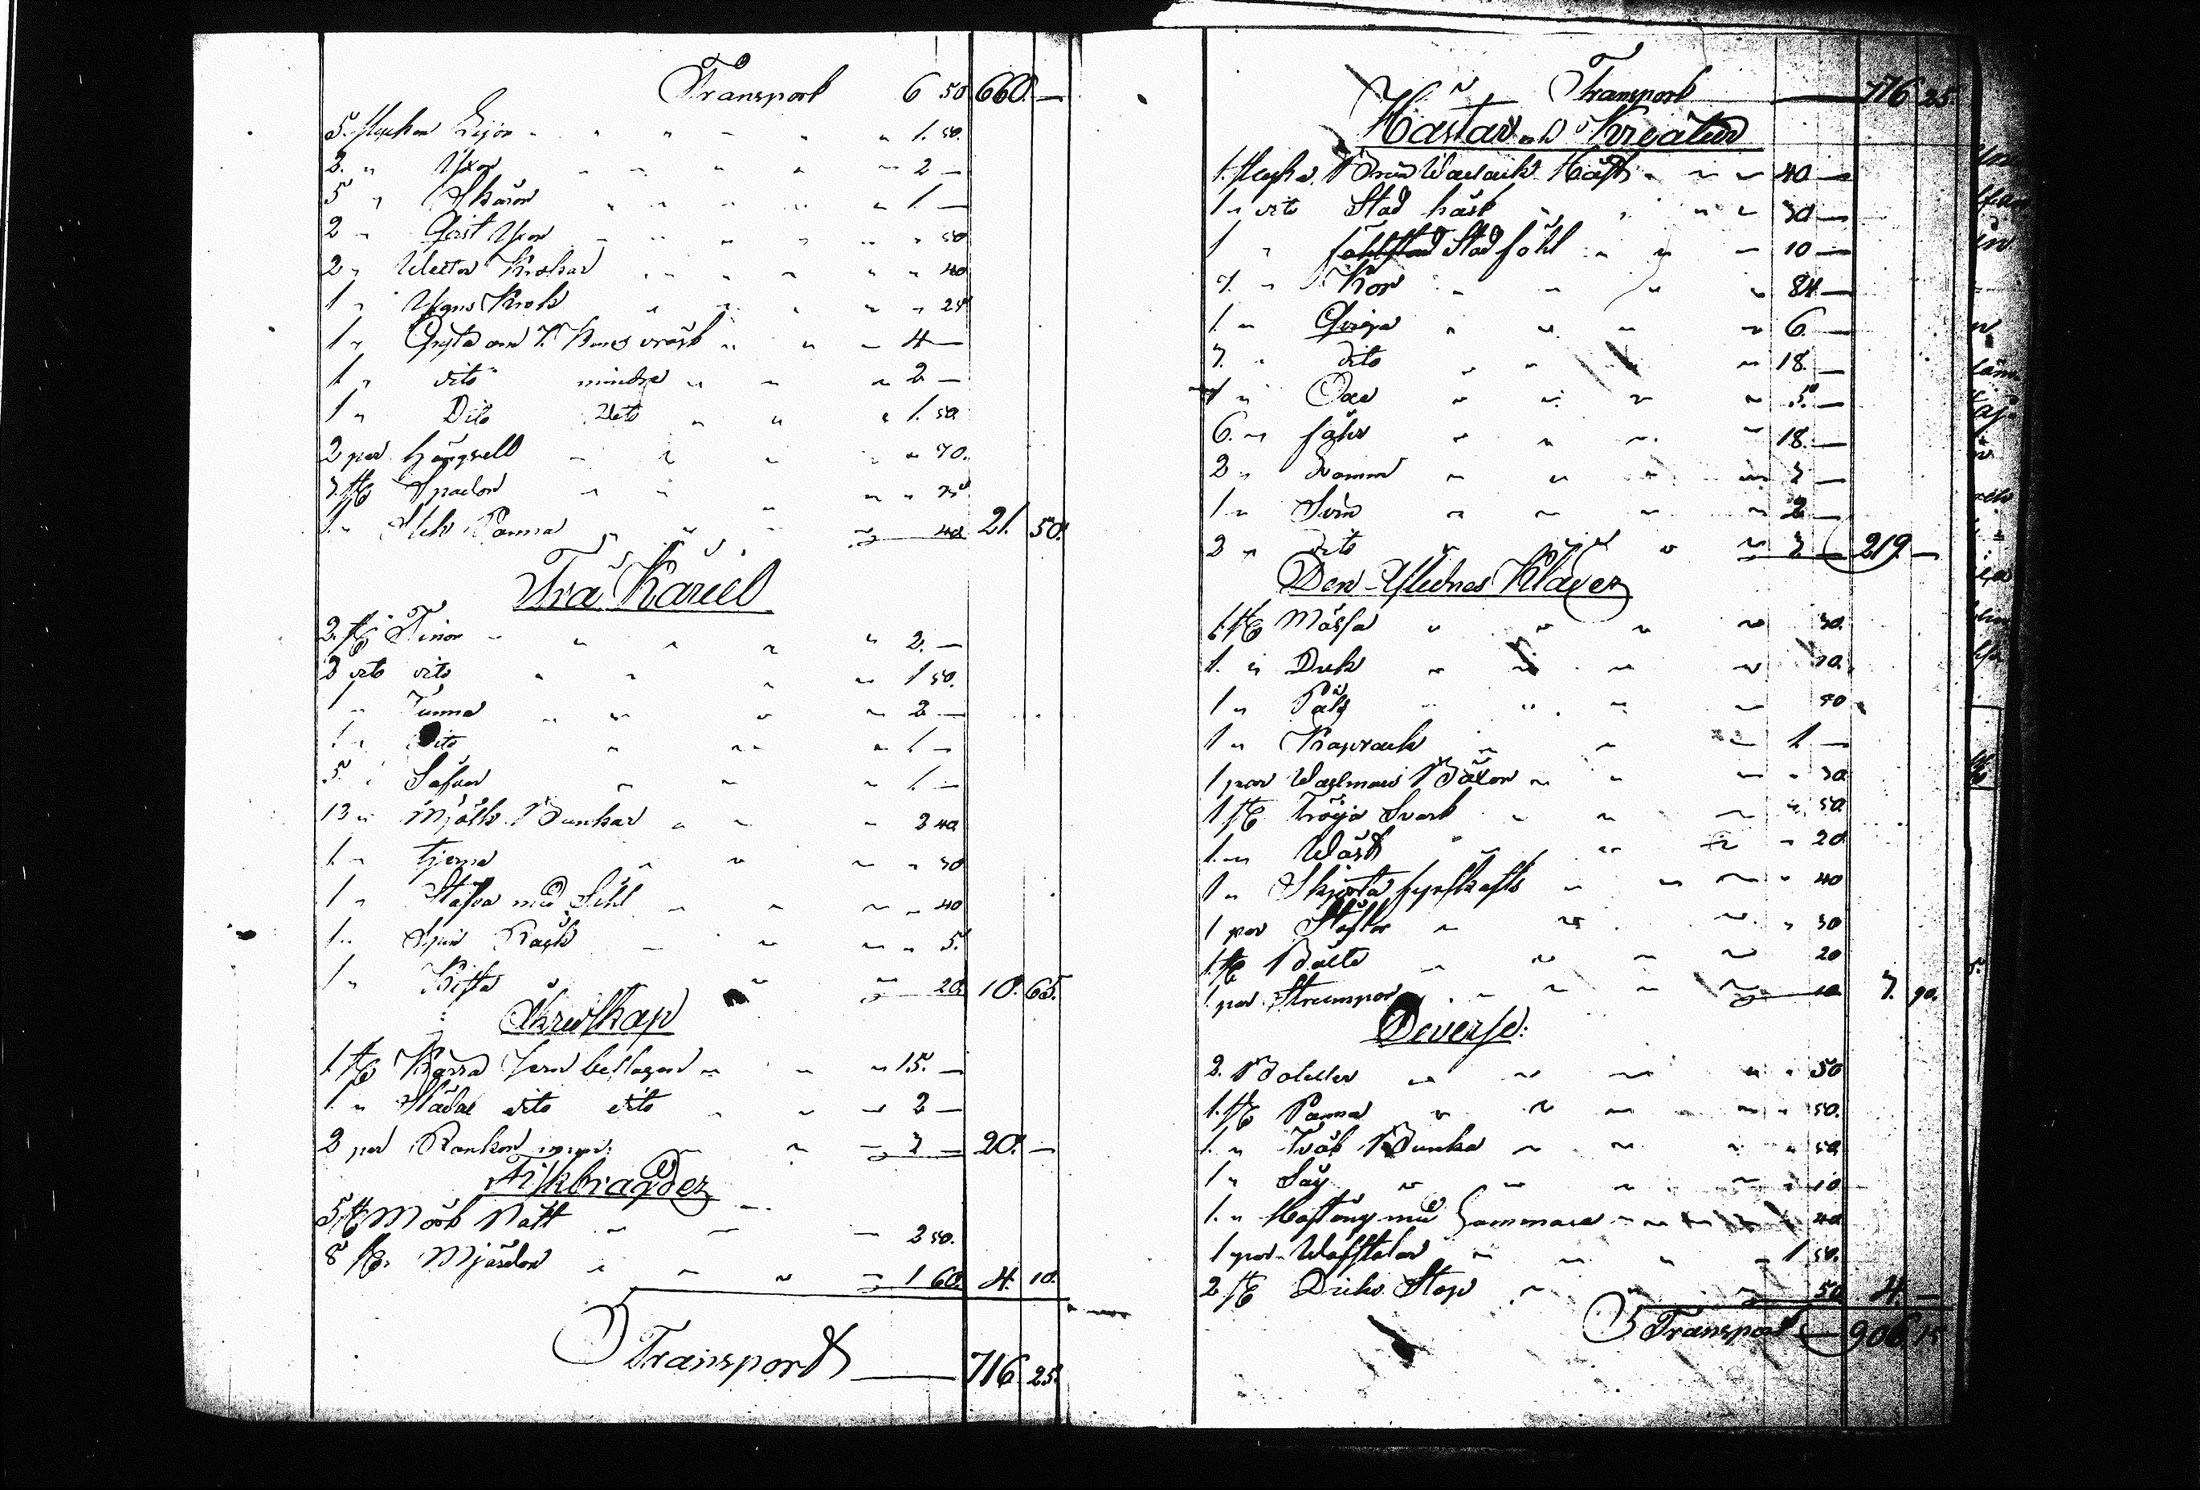 Transport 6 50 660. —
5. stycken Lijor " 1. 50.
2. " Yxor " 2 —
5 " Skäror " 1. —
2 " Qvist Yxor " 50
2 " Krokar " 40
1 " Krok " 25
1 " Gryta om 7. Kors vräk " 4 —
1 " dito mindre " 2 —
1 " Dito Dito " 1. 50.
2 par Hängsell " 70.
3 st Spadar " 75
1. " Stek Panna " 40 21. 50.
Trä Käriel
2. st Tinor " 2. —
3 dito dito " 1 50.
1 " Tunna " 2 —
1 " Dito " 1 —
5 " Såfvar " 1. —
13 " Mjölk Bunkar " 2 40
1. " Tjerna " 30
1 " Stäfva med Sihl " 40
1. " Spin Råck " 5.
1 " Kista " 20. 10. 65.
Åkredskap
1 st Kärra Jern beslagen " 15. —
1. " Släde dito dito " 2 —
2 par Rankor " 3 — 20. —
Fiskbragder
5 st Mört Nätt 2 50.
8 st. Mjärdor " 1 60. 4. 10.
Transport — 716. 25.
Transport — 716 25.
Hästar o Kreatur
1. stycke Brun Wallack Häst " 40 —
1 " dito Stod häst " 30 —
1 " Stod föhl " 10 —
7. " Kor " 84 —
1. " Qviga " 6 —
3. " dito " 18. —
1 " Oxe " 5. —
6. " fåhr " 18. —
2 " Lamm " 3 —
1 " Svin " 2 —
2 " dito " 3 — 219 —
Den Aflednes Kläder
1. st Mössa " 30.
1. " Duk " 30.
1 " Päls " 50
1 " Kaprock " 1 —
1 par Wallmars Böxor " 30
1 st Tröja Svart " 50
1. " Wäst " 20
1 " Skjorta fyrskafts " 40
1 par Stöflor " 30
1. st Bälte " 20
1 par Strumpor " 10 3. 90.
Deverse:
2. Boteller " 50
1. st Panna " 50.
1. " Bunka " 50
1 " Såg " 10
1. " Hoftång med Hammare " 40
1 par Wäfstolar " 1 50.
2 st Dricks Stop " 50 4. —
Transport — 906 15